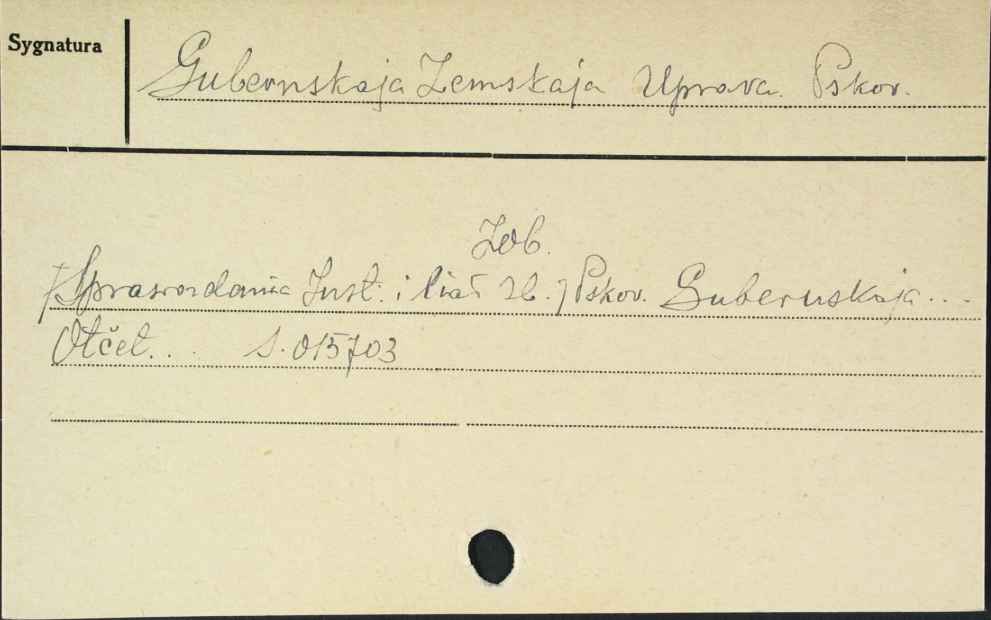 Sygnatura
Gubernskaja Zemskaja Uprava. Pskov.
Zob.
[Sprawozdania Inst. i Pskov. Gubernskaja...
Otčet... S. 015703